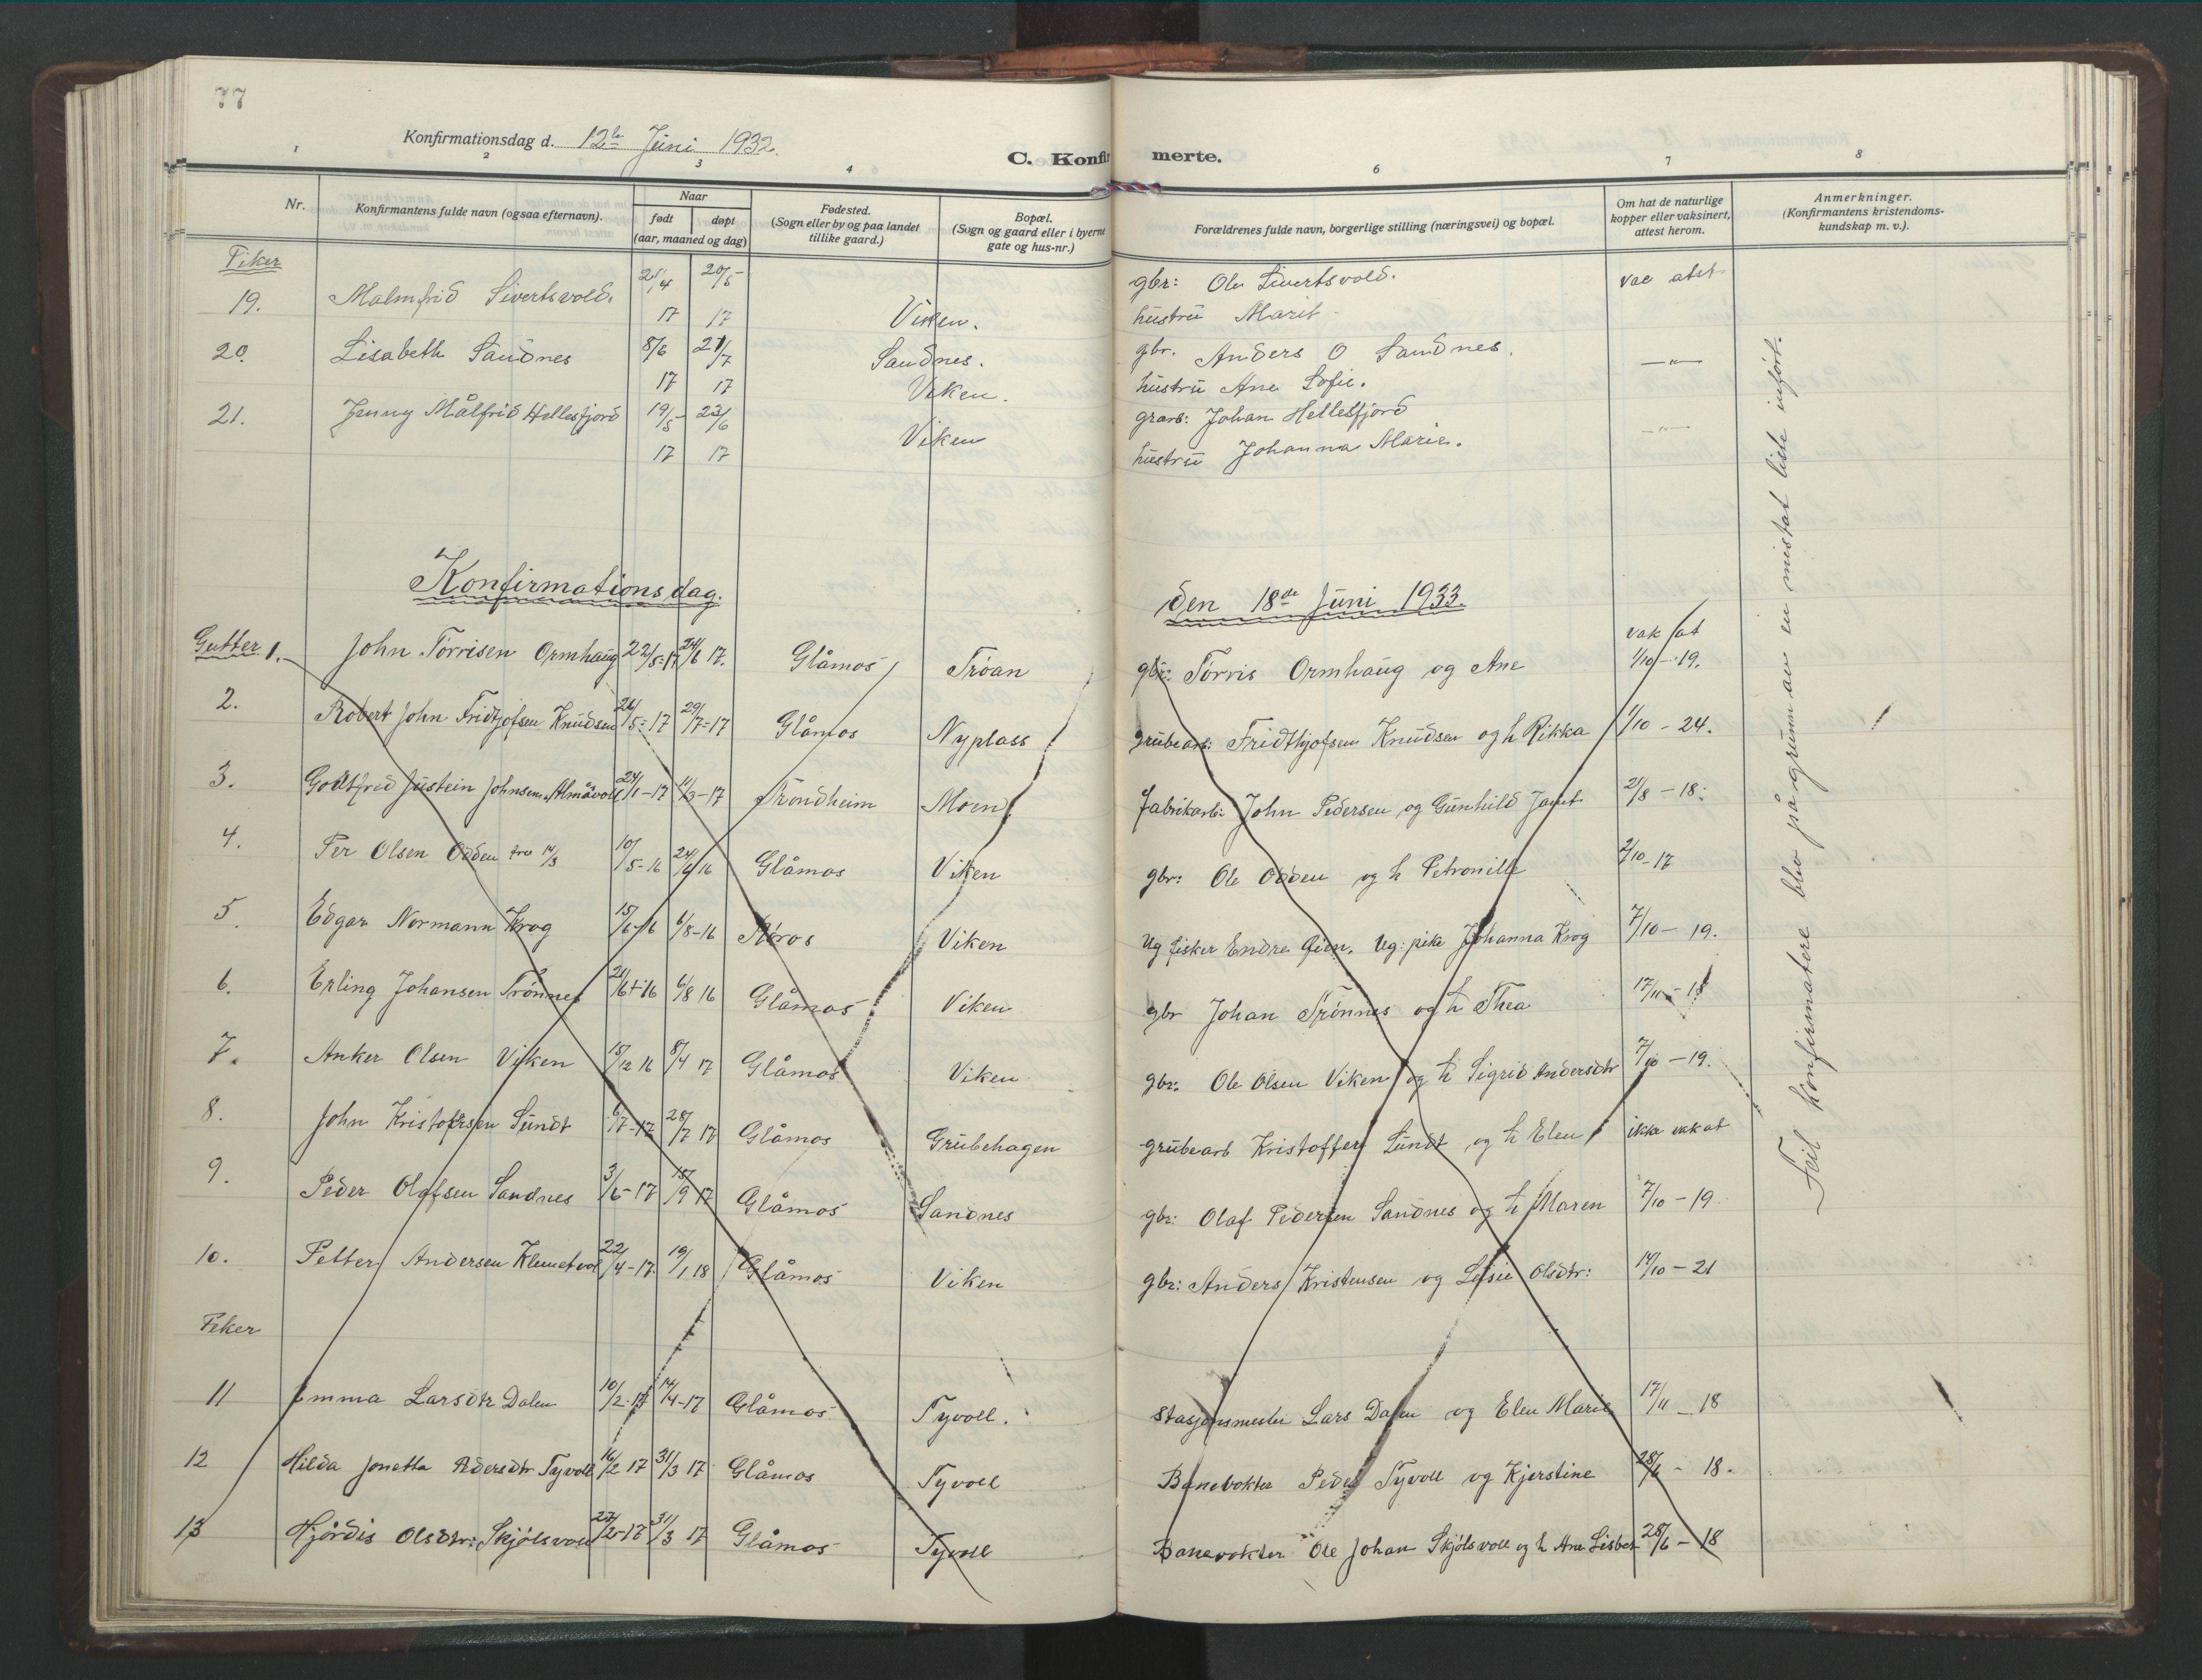 77
Konfirmationsdag d. 12te Juni 1932.
C. Konfirmerte.
1 2 3 4 6 7 8
Nr. Konfirmantens fulde navn (ogsaa efternavn). Naar født døpt (aar, maaned og dag) Fødested. (Sogn eller by og paa landet tillike gaard.) Bopæl. (Sogn og gaard eller i byerne gate og hus-nr.) Forældrenes fulde navn, borgerlige stilling (næringsvei) og bopæl. Om hat de naturlige kopper eller vaksinert, attest herom. Anmerkninger. (Konfirmantens kristendoms-kundskap m. v.).
Piker
19. Malmfrid Sivertsvold. 21/4 17 20/5- 17 Viken. gbr: Ole Sivertsvold. vac atst.
hustru Marit
20. Lisabeth Sandnes 8/6 17 21/7 17 Sandnes. Viken. gbr. Anders O Sandnes. —"—
hustru Ane Sofie.
21. Jenny Målfrid Hellesfjord 19/5- 17 23/6 17 Viken grarb: Johan Hellesfjord —"—
hustru Johanna Marie.
Konfirmationsdag. den 18de Juni 1933.
Gutter 1. John Torrisen Ormhaug 22/5-17 24/6 17. Glåmos Tróan gbr: Tórris Ormhaug og Ane vak at 1/10-19.
2. Robert John Fridtjofsen Knudsen 26/5-17 29/7-17 Glåmos Nyplass grubearb: Fridthjofsen Knudsen og h Rikka 1/10-24.
3. Godtfred Justein Johnsen Almåvoll 24/1-17 11/3-17 Trondheim Moen fabrikarb: John Pedersen og Gunhild 2/8-18.
4. Per Olsen Odden 10/5-16 24/6 16 Glåmos Viken gbr: Ole Odden og h Petronille 2/10-17
5. Edgar Normann Krog 15/6-16 6/8-16 Róros Viken Ug fisker Endre Óien. Ug: pike Johanna Krog 7/10-19.
6. Erling Johansen Trónnes 21/6-16 6/8 16 Glåmos Viken gbr Johan Trónnes og h Thea 17/11-18
7. Anker Olsen Viken 15/12 16 8/4 17 Glåmos Viken gbr. Ole Olsen Viken og h Sigrid Andersdtr 7/10-19.
8. John Kristofersen Sundt 6/7-17 28/7 17 Glåmos Grubehagen grubearb Kristoffer Sundt og h Elen ikke vak at
9. Peder Olafsen Sandnes 3/6-17 15/9 17 Glåmos Sandnes gbr: Olaf Pedersen Sandnes og h Maren 7/10-19
10. Petter Andersen Klemetvol 22/4-17. 19/1 18 Glåmos Viken gbr: Anders Kristensen og Lisie Olsdtr: 14/10-21
Piker
11 Emma Larsdtr Dalen 10/2-17 14/4-17 Glåmos Tyvoll. Stasjonsmester Lars Dalen og Elen Marie 17/11-18
12 Hilda Jonetta Pedersdtr Tyvoll 16/2 17 31/3 17 Glåmos Tyvoll Banevokter Peder Tyvoll og Kjerstine 28/6-18.
13 Hjórdis Olsdtr: Skjólsvoll 27/2-17 31/3 17 Glåmos Tyvoll Banevokter Ole Johan Skjólsvoll og h Ane Lisbet 28/6-18
Feil konfirmatere blev på grunn av en mistat liste infórt.